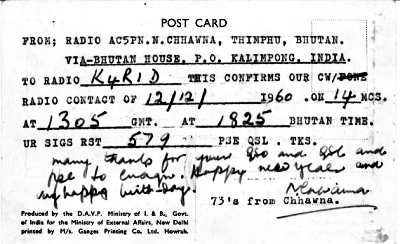 POST CARD
FROM; RADIO AC5PN.N.CHHAWNA, THIMPHU, BHUTAN.
VIA-BHUTAN HOUSE, P.O. KALIMPONG. INDIA.
TO RADIO K4RID THIS CONFIRMS OUR CW/FONE
RADIO CONTACT OF 12/12/ 1960 .ON 14 MCS.
AT 1305 GMT. AT 1825 BHUTAN TIME.
UR SIGS RST 579 PSE QSL . TKS.
many thanks for your QSO and QSL and
Happy new year and
happy birth day.
73's from Chhawna.
Produced by the D.A.V.P. Ministry of I. & B., Govt.
of India for the Ministry of External Affairs, New Delhi
printed by M/s. Ganges Printing Co. Ltd. Howrah.